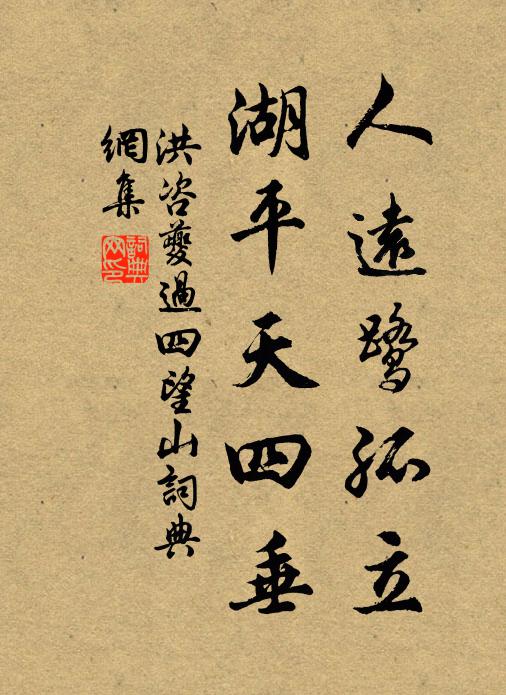 人遠鷺孤立
湖平天四垂
洪咨夔過四望山詞典
網集
詞典網印